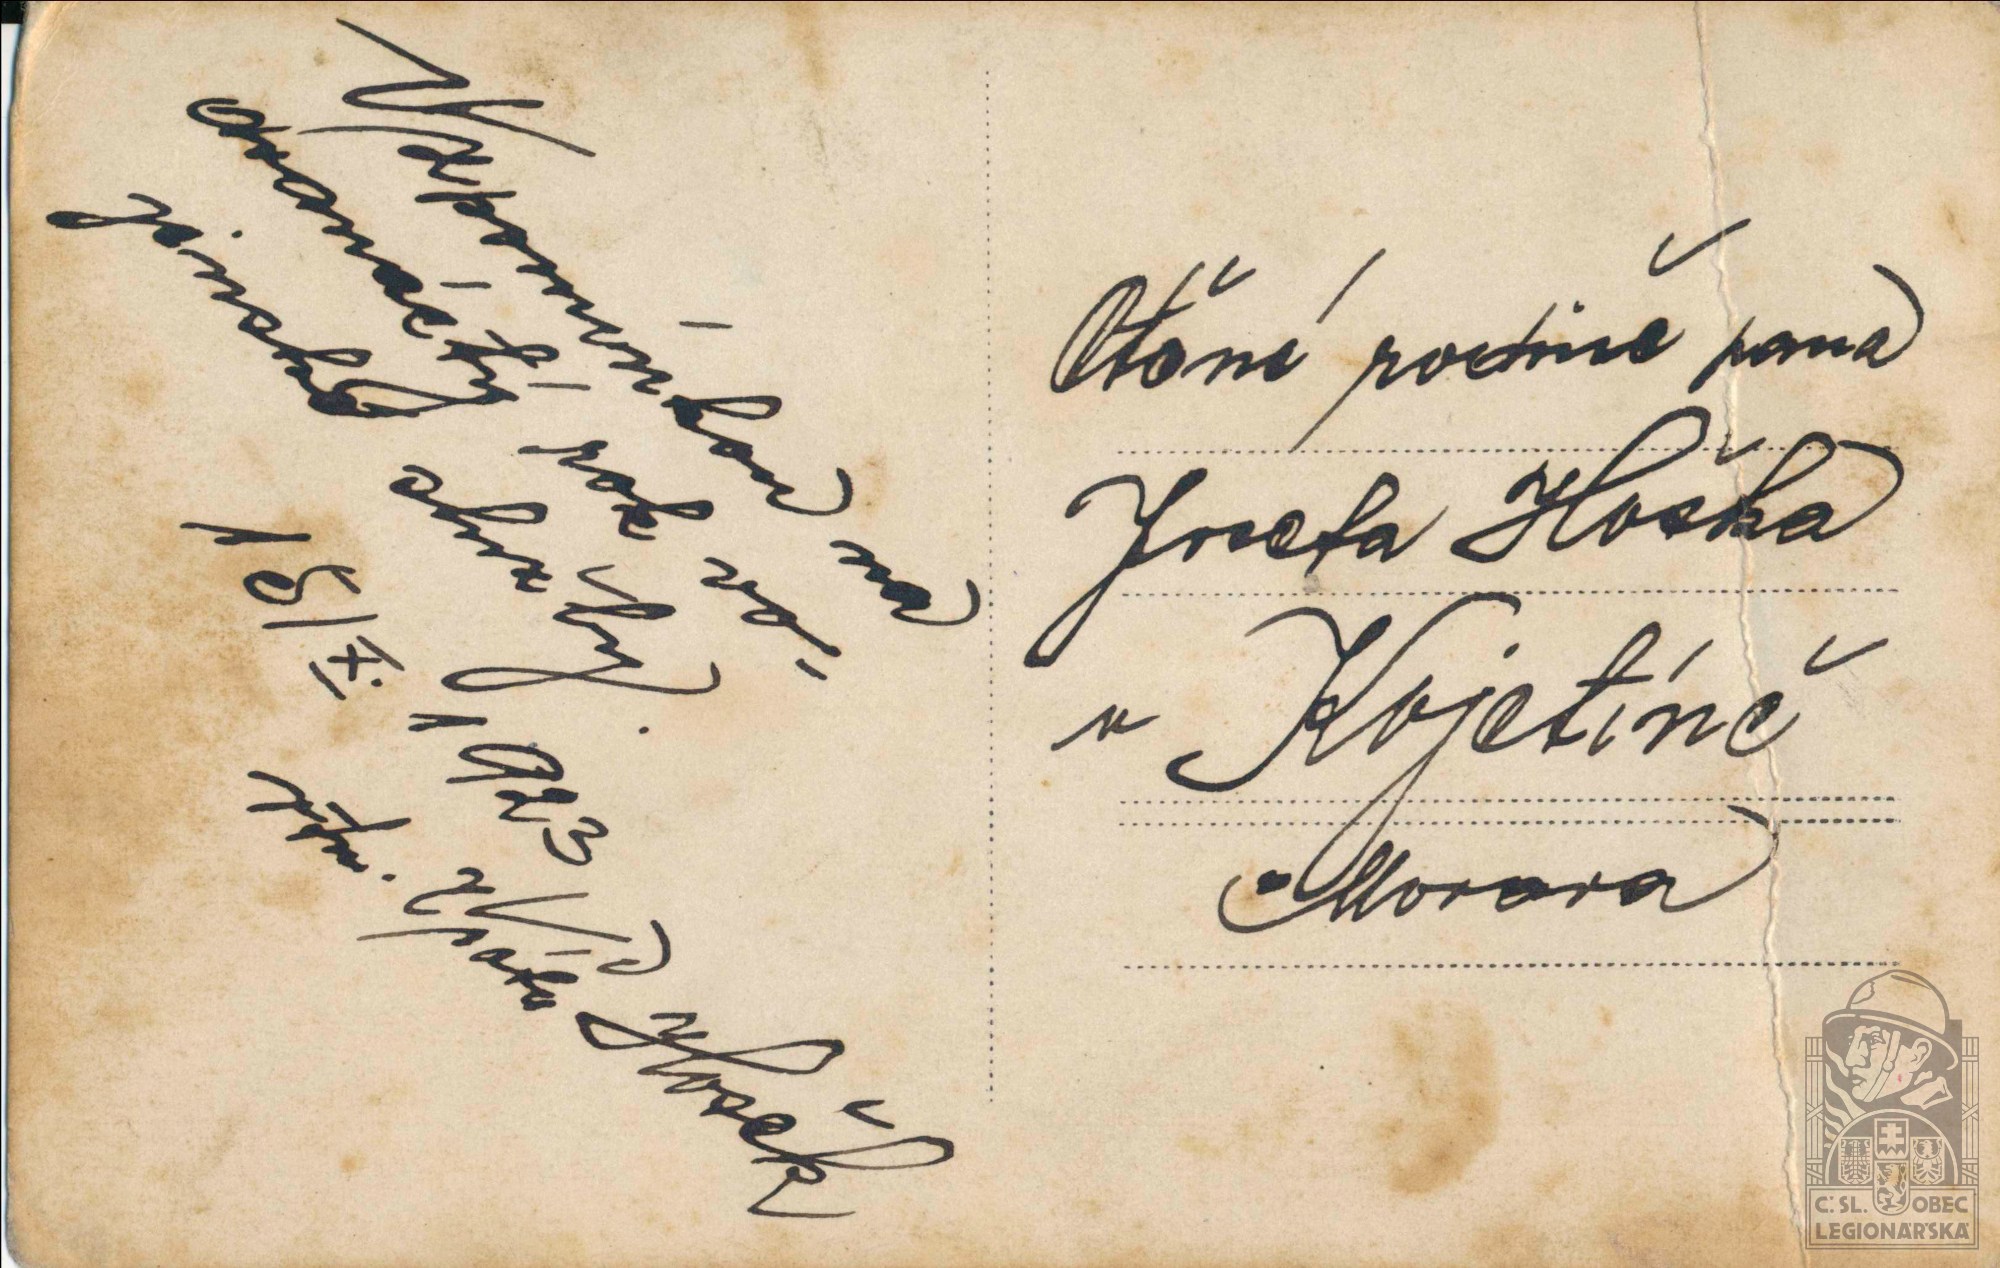 Vzpomínka na
dvanáctý rok vo-
jenské služby.
15/X. 1923
rtm. Vráťa Hošek
Ctěné rodině pana
Josefa Hoška
v Kojetíně
Morava
Č. SL. OBEC
LEGIONÁŘSKÁ